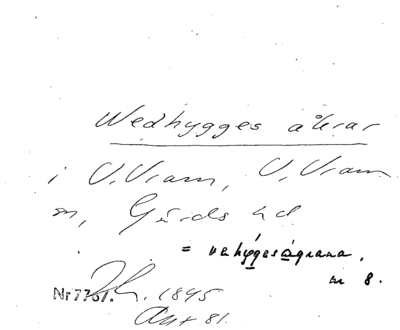 Wedhygges åkrar
i V. Vram, V. Vram
sn, Gärds hd
= vehyggesågrana.
m 8.
Nr 7757. 1845
Akt 81.